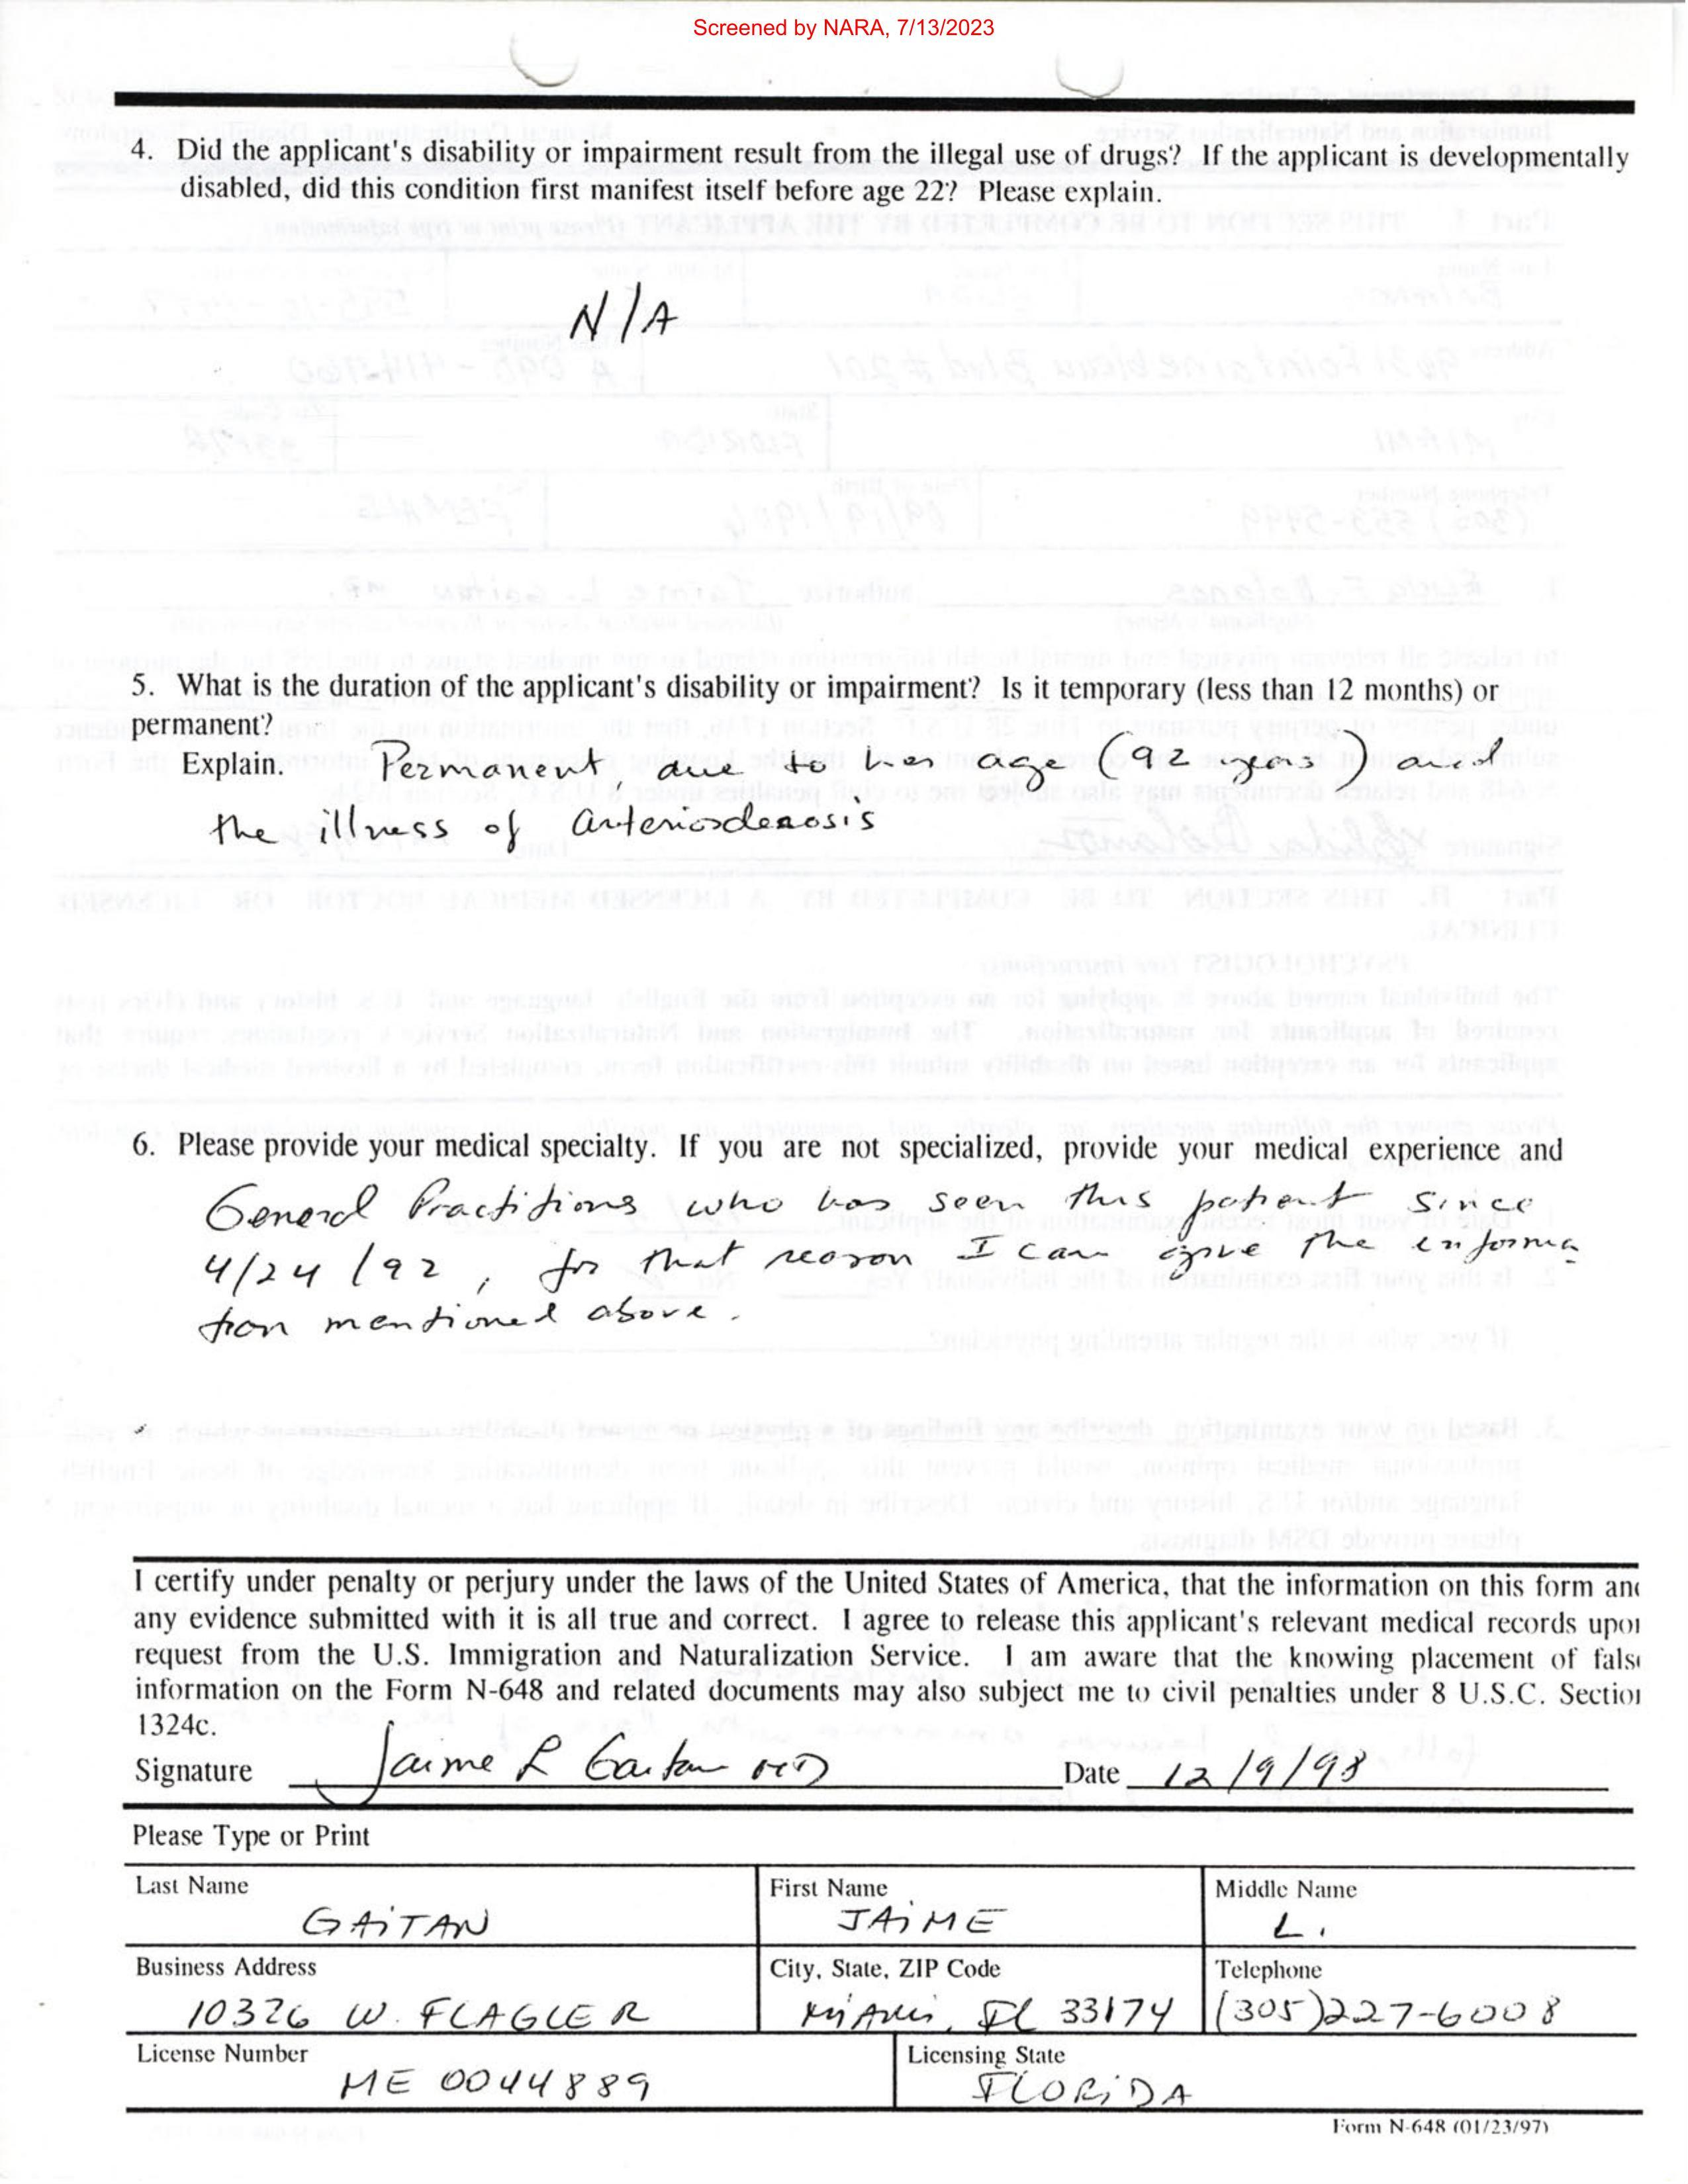 Screened by NARA, 7/13/2023
4. Did the applicant's disability or impairment result from the illegal use of drugs? If the applicant is developmentally
disabled, did this condition first manifest itself before age 22? Please explain.
N/A
5. What is the duration of the applicant's disability or impairment? Is it temporary (less than 12 months) or
permanent?
Explain. Permanent, due to her age (92 years) and
the illness of arteriosclerosis
6. Please provide your medical specialty. If you are not specialized, provide your medical experience and
General Practitions who has seen this patient since
4/24/92, for that reason I can give the informa
tion mentioned above.
I certify under penalty or perjury under the laws of the United States of America, that the information on this form an
any evidence submitted with it is all true and correct. I agree to release this applicant's relevant medical records upo
request from the U.S. Immigration and Naturalization Service. I am aware that the knowing placement of fals
information on the Form N-648 and related documents may also subject me to civil penalties under 8 U.S.C. Section
1324c.
Signature Jaime L Gaitan MD Date 12/9/98
Please Type or Print
Last Name First Name Middle Name
GAiTAN JAiME L.
Business Address City, State, ZIP Code Telephone
10326 W. FLAGLER MiAmi, Fl 33174 (305)227-6008
License Number Licensing State
ME 0044889 FLORiDA
Form N-648 (01/23/97)